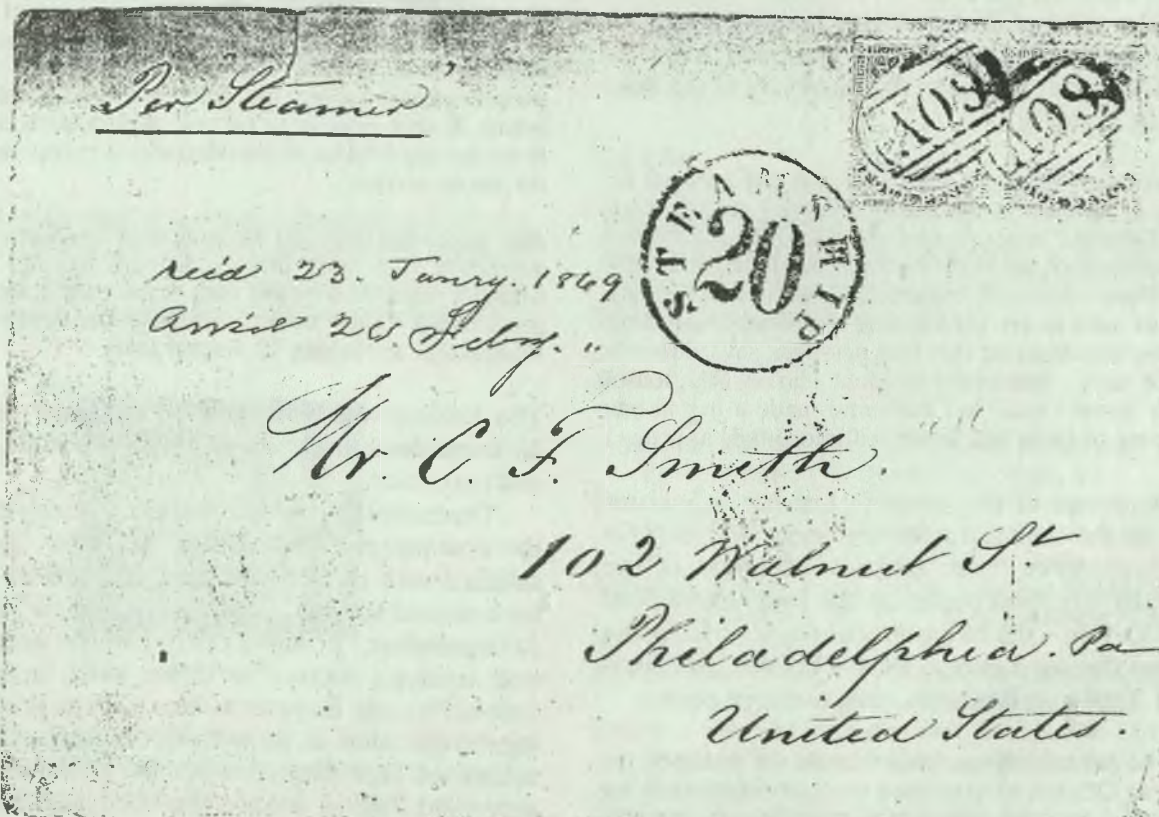 Per Steamer
A08
A08
STEAMSHIP
20
23. Janry. 1869
20. Febry. "
Mr. C. F. Smith.
102 Walnut St
Philadelphia. Pa
United States.